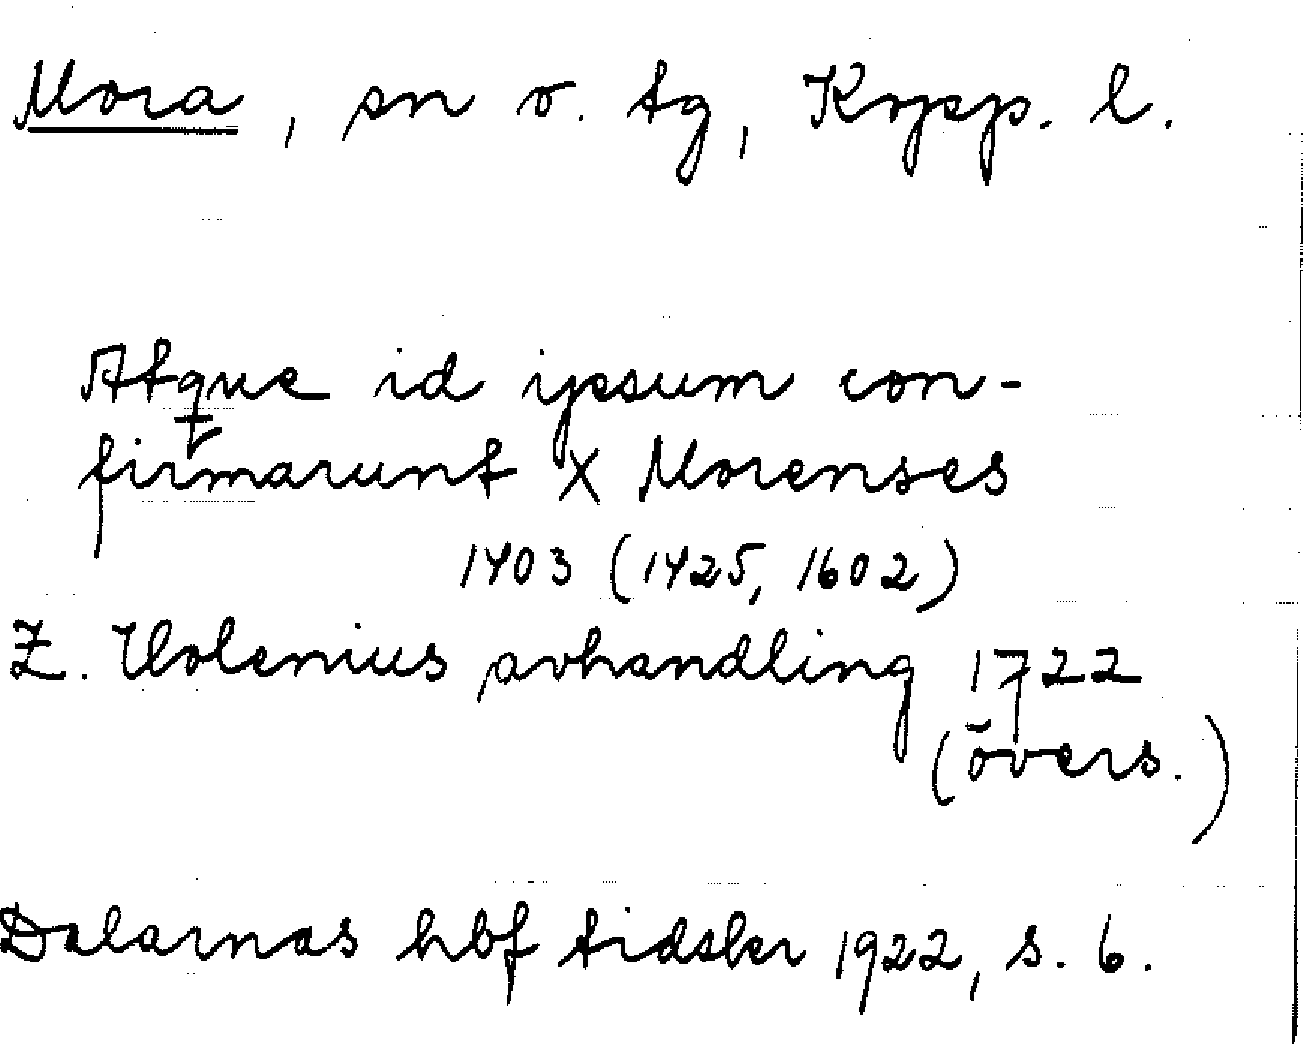 Mora, sn o. tg, Kopp. l.
Atque id ipsum con-
firmarunt X Morenses
1403 (1425, 1602)
Z. Holenius avhandling 1722
(övers.)
Dalarnas hbf tidskr 1922, s. 6.